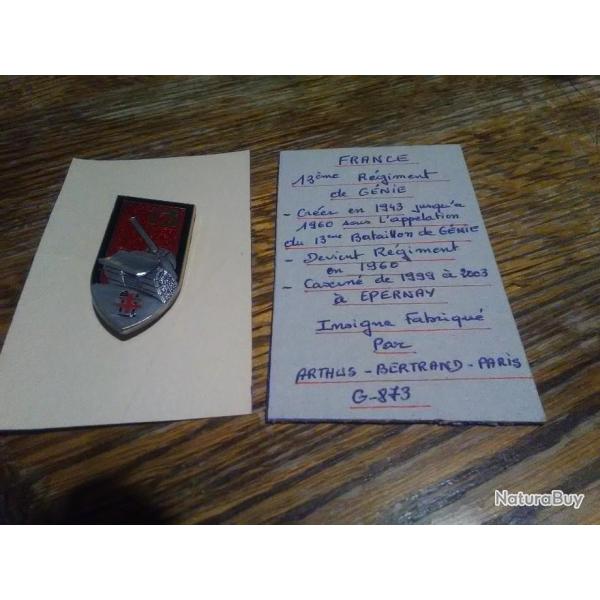 FRANCE
13ème Régiment
de GÉNIE
- Créer en 1943 jusqu'à
1960 sous l'appelation
du 13ème Bataillon de GÉNIE
- Devient Régiment
en 1960
- Caserné de 1999 à 2003
à EPERNAY
Insigne Fabriqué
Par
ARTHUS-BERTRAND-PARIS
G-873
NaturaBuy